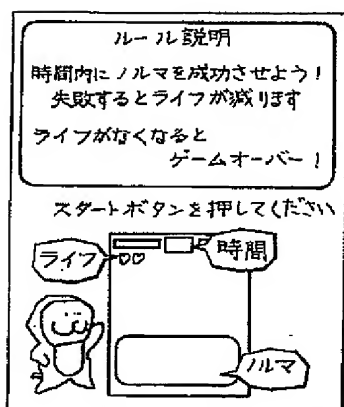 ルール説明
時間内にノルマを成功させよう!
失敗するとライフが減ります
ライフがなくなると
ゲームオーバー!
スタートボタンを押してください
ライフ
時間
ノルマ